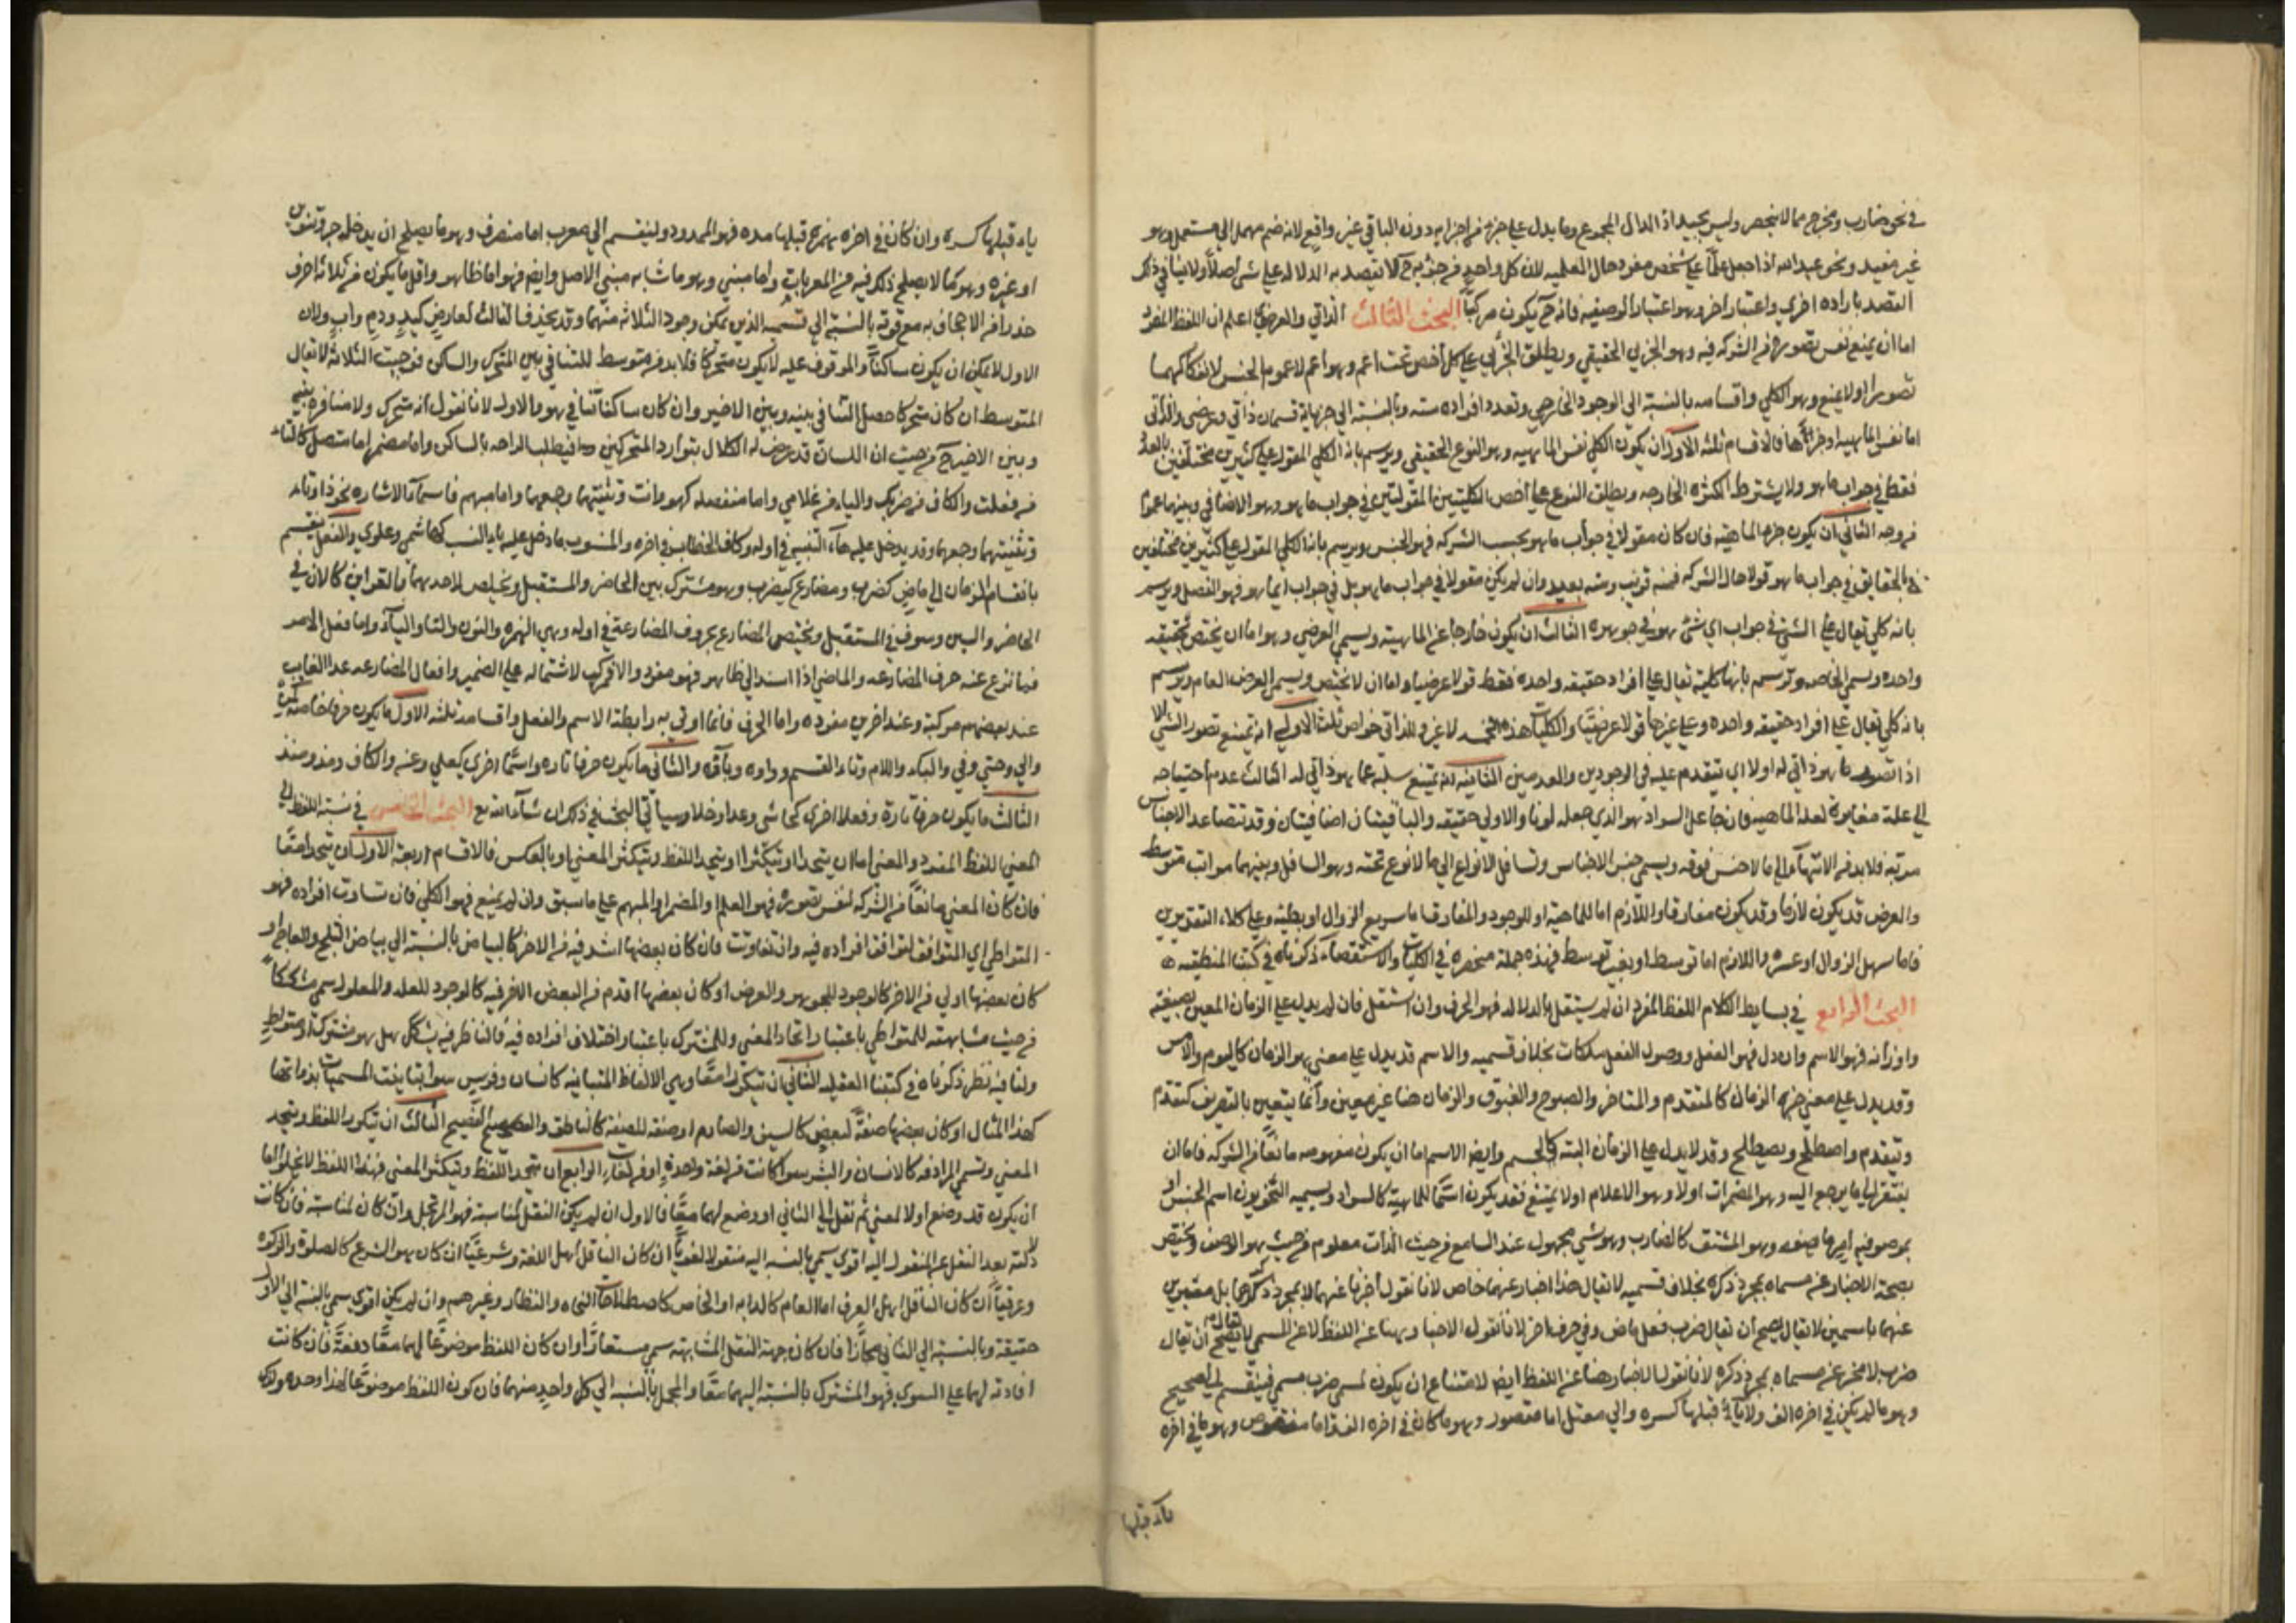 في نحو ضارب ومخرج مما لا ينحصر وليس بجيد اذ الدال المجموع وما يدل على جزء من اجزايه دون الباقي غير واقع لانه ضم مهمل الى مستعمل وهو
غير مفيد ونحو عبد الله اذا جعل علمًا على شخص مفرد حال العلميه لان كل واحد من جزئيه ح لا يقصد به الدلاله على شى اصلاً ولا ينافي ذلك
القصد باراده اخرى واعتبار اخر وهو اعتبار الوصفيه فانه ح يكون مركبًا البحث الثالث الذاتي والعرضي اعلم ان اللفظ المفرد
اما ان يمنع نفس تصوره من الشركه فيه وهو الجزئي الحقيقي ويطلق الجزئي على كل اخص تحت اعم وهو اعم لا عموم الجنس لانفكاكهما
تصورا اولا يمنع وهو الكلي واقسامه بالنسبة الى الوجود الخارجي وتعدد افراده سته وبالنسبة الى جزياته قسمان ذاتي وعرضي والذاتي
اما نفس الماهيه او جزأها فالاقسام ثلثه الاول ان يكون الكلي نفس الماهيه وهو النوع الحقيقي ويرسم بانه الكلي المقول على كثيرين مختلفين بالعدد
فقط في جواب ما هو ولا يشترط الكثره الخارجه ويطلق النوع على اخص الكليتين المقولتين في جواب ما هو وهو الاضافي وبينهما عمومًا
من وجه الثاني ان يكون جزء الماهية فان كان مقولا في جواب ما هو بحسب الشركه فهو الجنس ويرسم بانه الكلي المقول على كثيرين مختلفين
بالحقايق في جواب ما هو قولا حال الشركه فمنه قريب ومنه بعيد وان لم يكن مقولا في جواب ما هو بل في جواب ايما هو فهو الفصل ويرسم
بانه كلي يقال على الشي في جواب اي شي هو في جوهره الثالث ان يكون خارجا عن الماهية ويسمى العرضي وهو اما ان يختص بحقيقه
واحده ويسمى الخاصه وترسم بانها كلية تقال على افراد حقيقه واحده فقط قولا عرضيا واما ان لا يختص ويسمى العرض العام ويرسم
بانه كلي يقال على افراد حقيقه واحده وعلى غيرها قولا عرضيًا والكليات هذه الخمسه لا غير وللذاتي خواص ثلث الاولى انه يمتنع تصور الشي الا
اذا تصور ما هو ذاتي له اولا اي يتقدم عليه في الوجودين والعدمين الثانيه انه يمتنع سلبه عما هو ذاتي له الثالث عدم احتياجه
الى علة مغايرة لعلة الماهيه فان جاعل السواد هو الذي جعله لونا والاولى حقيقه والباقيتان اضافيتان وقد تتصاعد الاجناس
مرتبه فلا بد من الانتهاء الى ما لا جنس فوقه ويسمى جنس الاجناس وتسافل الانواع الى ما لا نوع تحته وهو السافل وبينهما مراتب متوسط
والعرض قد يكون لازما وقد يكون مفارقا واللازم اما للماهية او للوجود والمفارق اما سريع الزوال او بطيئه وعلى كلا التقديرين
فاما سهل الزوال او عسره واللازم اما توسط او بغير توسط فهذه جملة منحصره في الكليات والاستقصاء ذكرناه في كتبنا المنطقيه
البحث الرابع في بسايط الكلام اللفظ المفرد ان لم يستقل بالدلاله فهو الحرف وان استقل فان لم يدل على الزمان المعين بصيغته
واوزانه فهو الاسم وان دل فهو الفعل ووصول الفعل سكنات بخلاف قسميه والاسم قد يدل على معنى هو الزمان كاليوم والامس
وقد يدل على معنى جزه الزمان كالمتقدم والمتاخر والصبوح والغبوق والزمان هنا غير معين وانما يتعين بالتصريف كتقدم
وتيقدم واصطلح ويصطلح وقد لا يدل على الزمان البته كالجسم وايضا الاسم اما ان يكون مفهومه مانعًا من الشركه فاما ان
يفتقر الى ما يرجع اليه وهو المضمرات اولا وهو الاعلام اولا يمتنع فقد يكون اسمًا للماهية كالسواد ويسميه النحويون اسم الجنس او
بموصوفيه امر ما بصفه وهو المشتق كالضارب وهو شي مجهول عند السامع من حيث الذات معلوم من حيث هو الوصف ويختص
بصحة الاخبار عن مسماه بمجرد ذكره بخلاف قسميه لا يقال هذا اخبار عنهما خاص لانا نقول اخبرنا عنهما لا بمجرد ذكرهما بل معبرين
عنهما باسمين لا يقال يصح ان يقال ضرب فعل ماض وفي حرف جر لانا نقول الاخبار هنا عن اللفظ لا عن المسمى لا يقال لم يصح ان يقال
ضرب لا مخبر عن مسماه بمجرد ذكره لانا نقول الاخبار هنا عن اللفظ ايضا لامتناع ان يكون لمسمى ضرب مسمى فينقسم الى صحيح
وهو ما لم يكن في اخره الف ولا ياء قبلها كسره والى معتل اما مقصور وهو ما كان في اخره الف واما منقوص وهو ما في اخره
ياء قبلها
ياء قبلها كسره وان كان في اخره همزة قبلها مده فهو الممدود ولينقسم الى معرب اما منصرف وهو ما يصلح ان يدخله جر وتنوين
او غيره وهو ما لا يصلح ذلك فيه من المعربات واما مبني وهو ما شابه مبني الاصل وايضا فهو اما ظاهر واقل ما يكون من ثلاثة احرف
حذرا من الاجحاف به مع قوته بالنسبة الى قسميه الذين يمكن وجود الثلاثه منهما وقد يحذف الثالث لعارض كيد ودم واب ولان
الاول لا يمكن ان يكون ساكنًا والموقوف عليه لا يكون متحركا فلا بد من متوسط للتنافي بين المتحرك والساكن فوجبت الثلاثة لا يقال
المتوسط ان كان متحركا حصل التنافي بينه وبين الاخير وان كان ساكنا نافي هو والاول لانا نقول انه متحرك ولا منافره بينه
وبين الاخير ح من حيث ان اللسان قد عرض له الكلال بتوارد المتحركين فيطلب الراحه بالساكن واما مضمر اما متصل كالتاء
من فعلت والكاف من ضربك والياء من غلامي واما منفصله كهو وانت وتثنيتهما وجمعهما واما مبهم فاسماء الاشاره نحو ذا وتا
وتثنيتهما وجمعهما وقد يدخل عليه هاء التنبيه في اوله وكاف الخطاب في اخره والمنسوب ما دخل عليه ياء النسب كهاشمي وعلوي والفعل ينقسم
بانقسام الزمان الى ماض كضرب ومضارع كيضرب وهو مشترك بين الحاضر والمستقبل ويخلص لاحدهما بالقراين كالان في
الحاضر والسين وسوف في المستقبل ويختص المضارع بحروف المضارعة في اوله وهي الهمزه والنون والتاء والياء واما فعل الامر
فما نزع عنه حرف المضارعه والماضي اذا اسند الى ظاهر فهو مفرد والا فمركب لاشتماله على الضمير وافعال المضارعه عدا الغايب
عند بعضهم مركبة وعند اخرين مفرده واما الحرف فانما اوتي به رابطة الاسم والفعل واقسامه ثلثه الاول ما يكون حرفا خاصه كمن
والى وحتى وفي والباء واللام وتاء القسم وواوه وباؤه والثاني ما يكون حرفا تاره واسمًا اخرى كعلى وعن والكاف ومذ ومنذ
الثالث ما يكون حرفا تارة وفعلا اخرى كحاشى وعدا وخلا وسياتي البحث في ذلك ان شاء الله تع البحث الخامس في نسبة اللفظ الى
المعنى اللفظ المفرد والمعنى اما ان يتحدا او يتكثرا او يتحد اللفظ ويتكثر المعنى او بالعكس فالاقسام اربعة الاول ان يتحدا معًا
فان كان المعنى مانعًا من الشركه لنفس تصوره فهو العلم او المضمر او المبهم على ما سبق وان لم يمنع فهو الكلي فان تساوت افراده فهو
المتواطي اي المتوافق لتوافق افراده فيه وان تفاوتت فان كان بعضها اشد فيه من الاخر كالبياض بالنسبة الى بياض الثلج والعاج او
كان بعضها اولى من الاخر كالوجود للجوهر والعرض او كان بعضها اقدم من البعض الاخر فيه كالوجود للعله والمعلول سمي مشككًا
من حيث مشابهته للمتواطي باعتبار اتحاد المعنى وللمشترك باعتبار اختلاف افراده فيه فالناظر فيه يشكك هل هو مشترك او متواطي
ولنا فيه نظر ذكرناه في كتبنا العقليه الثاني ان تتكثرا معًا وهي الالفاظ المتباينه كانسان وفرس سوا تباينت المسميات بذواتها
كهذا المثال او كان بعضها صفة لبعض كالسيف والصارم او صفه للصفة كالناطق والفصيح الثالث ان يتكثر اللفظ ويتحد
المعنى وتسمى المرادفه كالانسان والبشر سوا كانت من لغة واحدة او من لغات الرابع ان يتحد اللفظ ويتكثر المعنى فهذا اللفظ لا يخلوا اما
ان يكون قد وضع اولا لمعنى ثم نقل الى الثاني او وضع لهما معًا فالاول ان لم يكن النقل لمناسبة فهو المرتجل وان كان لمناسبة فان كانت
دلالته بعد النقل على المنقول اليه اقوى سمي بالنسبه اليه منقولا لغويًا ان كان الناقل اهل اللغة وشرعيًا ان كان هو الشرع كالصلوة والزكوه
وعرفيًا ان كان الناقل اهل العرف اما العام كالدابه او الخاص كاصطلاحات النحاه والنظار وغيرهم وان لم يكن اقوى سمي بالنسبة الى الاول
حقيقة وبالنسبة الى الثاني مجازًا فان كان جهة النقل المشابهة سمي مستعارًا وان كان اللفظ موضوعًا لهما معًا دفعةً فان كانت
افادته لهما على السوي فهو المشترك بالنسبة اليهما معًا والمجمل بالنسبة الى كل واحد منهما فان كون اللفظ موضوعًا لهذا وحده ولذلك